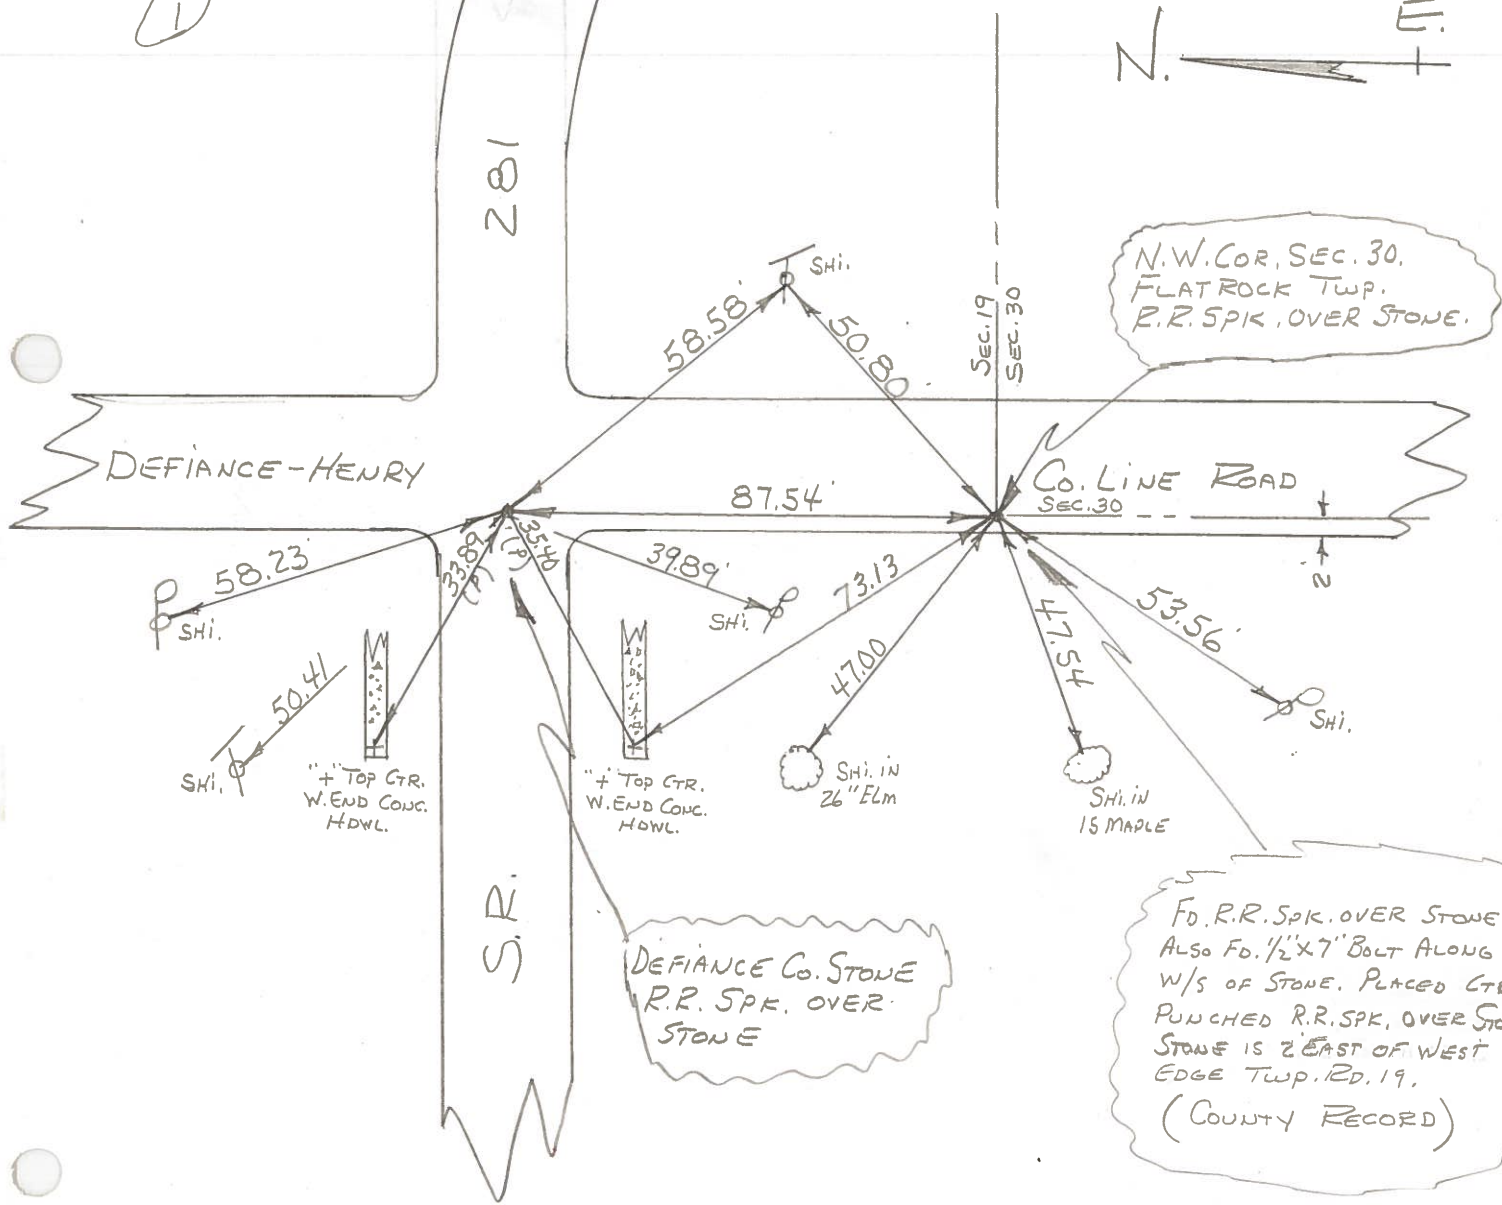 1
N.
E.
281
SHI.
58.58'
50.80'
SEC. 19
SEC. 30
N.W. COR. SEC. 30.
FLATROCK TWP.
R.R. SPIK. OVER STONE.
DEFIANCE-HENRY
CO. LINE ROAD
SEC. 30
87.54'
2'
58.23'
SHI.
33.89
(P)
35.40
(P)
39.89'
SHI.
73.13
47.00
47.54
53.56'
SHI.
50.41
SHI.
"+" TOP CTR.
W. END CONC.
HDWL.
"+" TOP CTR.
W. END CONC.
HDWL.
SHI. IN
26" ELM
SHI. IN
15 MAPLE
S.R.
DEFIANCE CO. STONE
R.R. SPK. OVER
STONE
FD. R.R. SPK. OVER STONE
ALSO FD. 1/2" X 7" BOLT ALONG
W/S OF STONE. PLACED
PUNCHED R.R. SPK. OVER
STONE IS 2' EAST OF WEST
EDGE TWP. RD. 19.
(COUNTY RECORD)